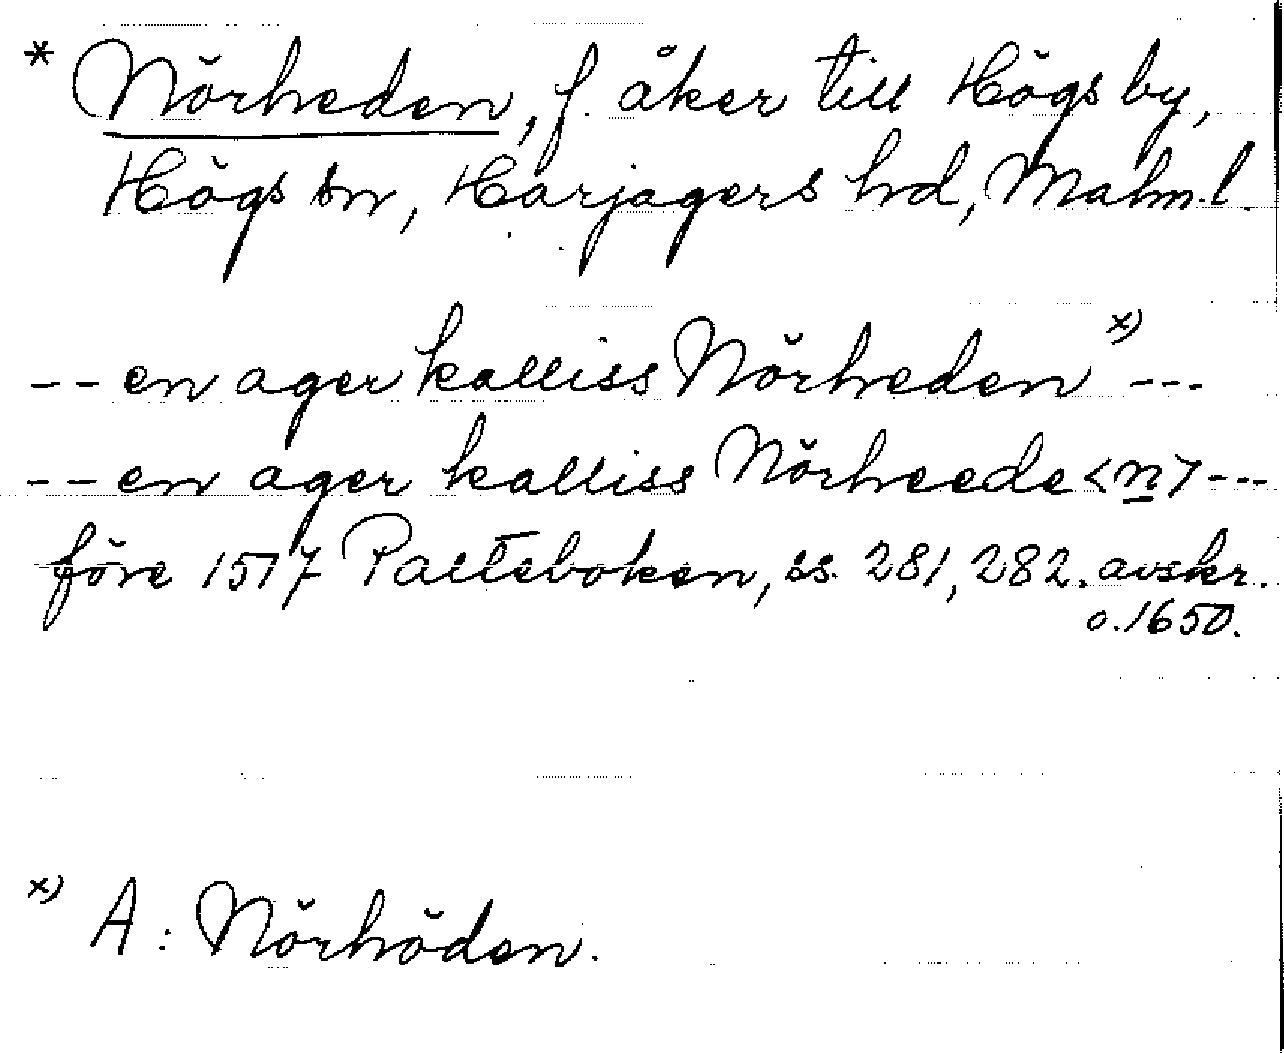 * Nörheden, f. åker till Högs by,
Högs sn, Harjagers hd, Malm.l.
-- en ager kalliss Nörheden x) ---
-- en ager kalliss Nörheede<n> ---
före 1517 Palteboken, ss. 281, 282. avskr.
o. 1650.
x) A: Nörhöden.